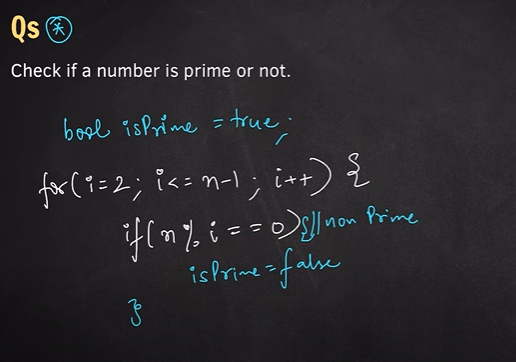 Qs *
Check if a number is prime or not.
bool isPrime = true;
for(i=2; i<= n-1; i++) {
if(n % i == 0) { // non Prime
isPrime = false
}